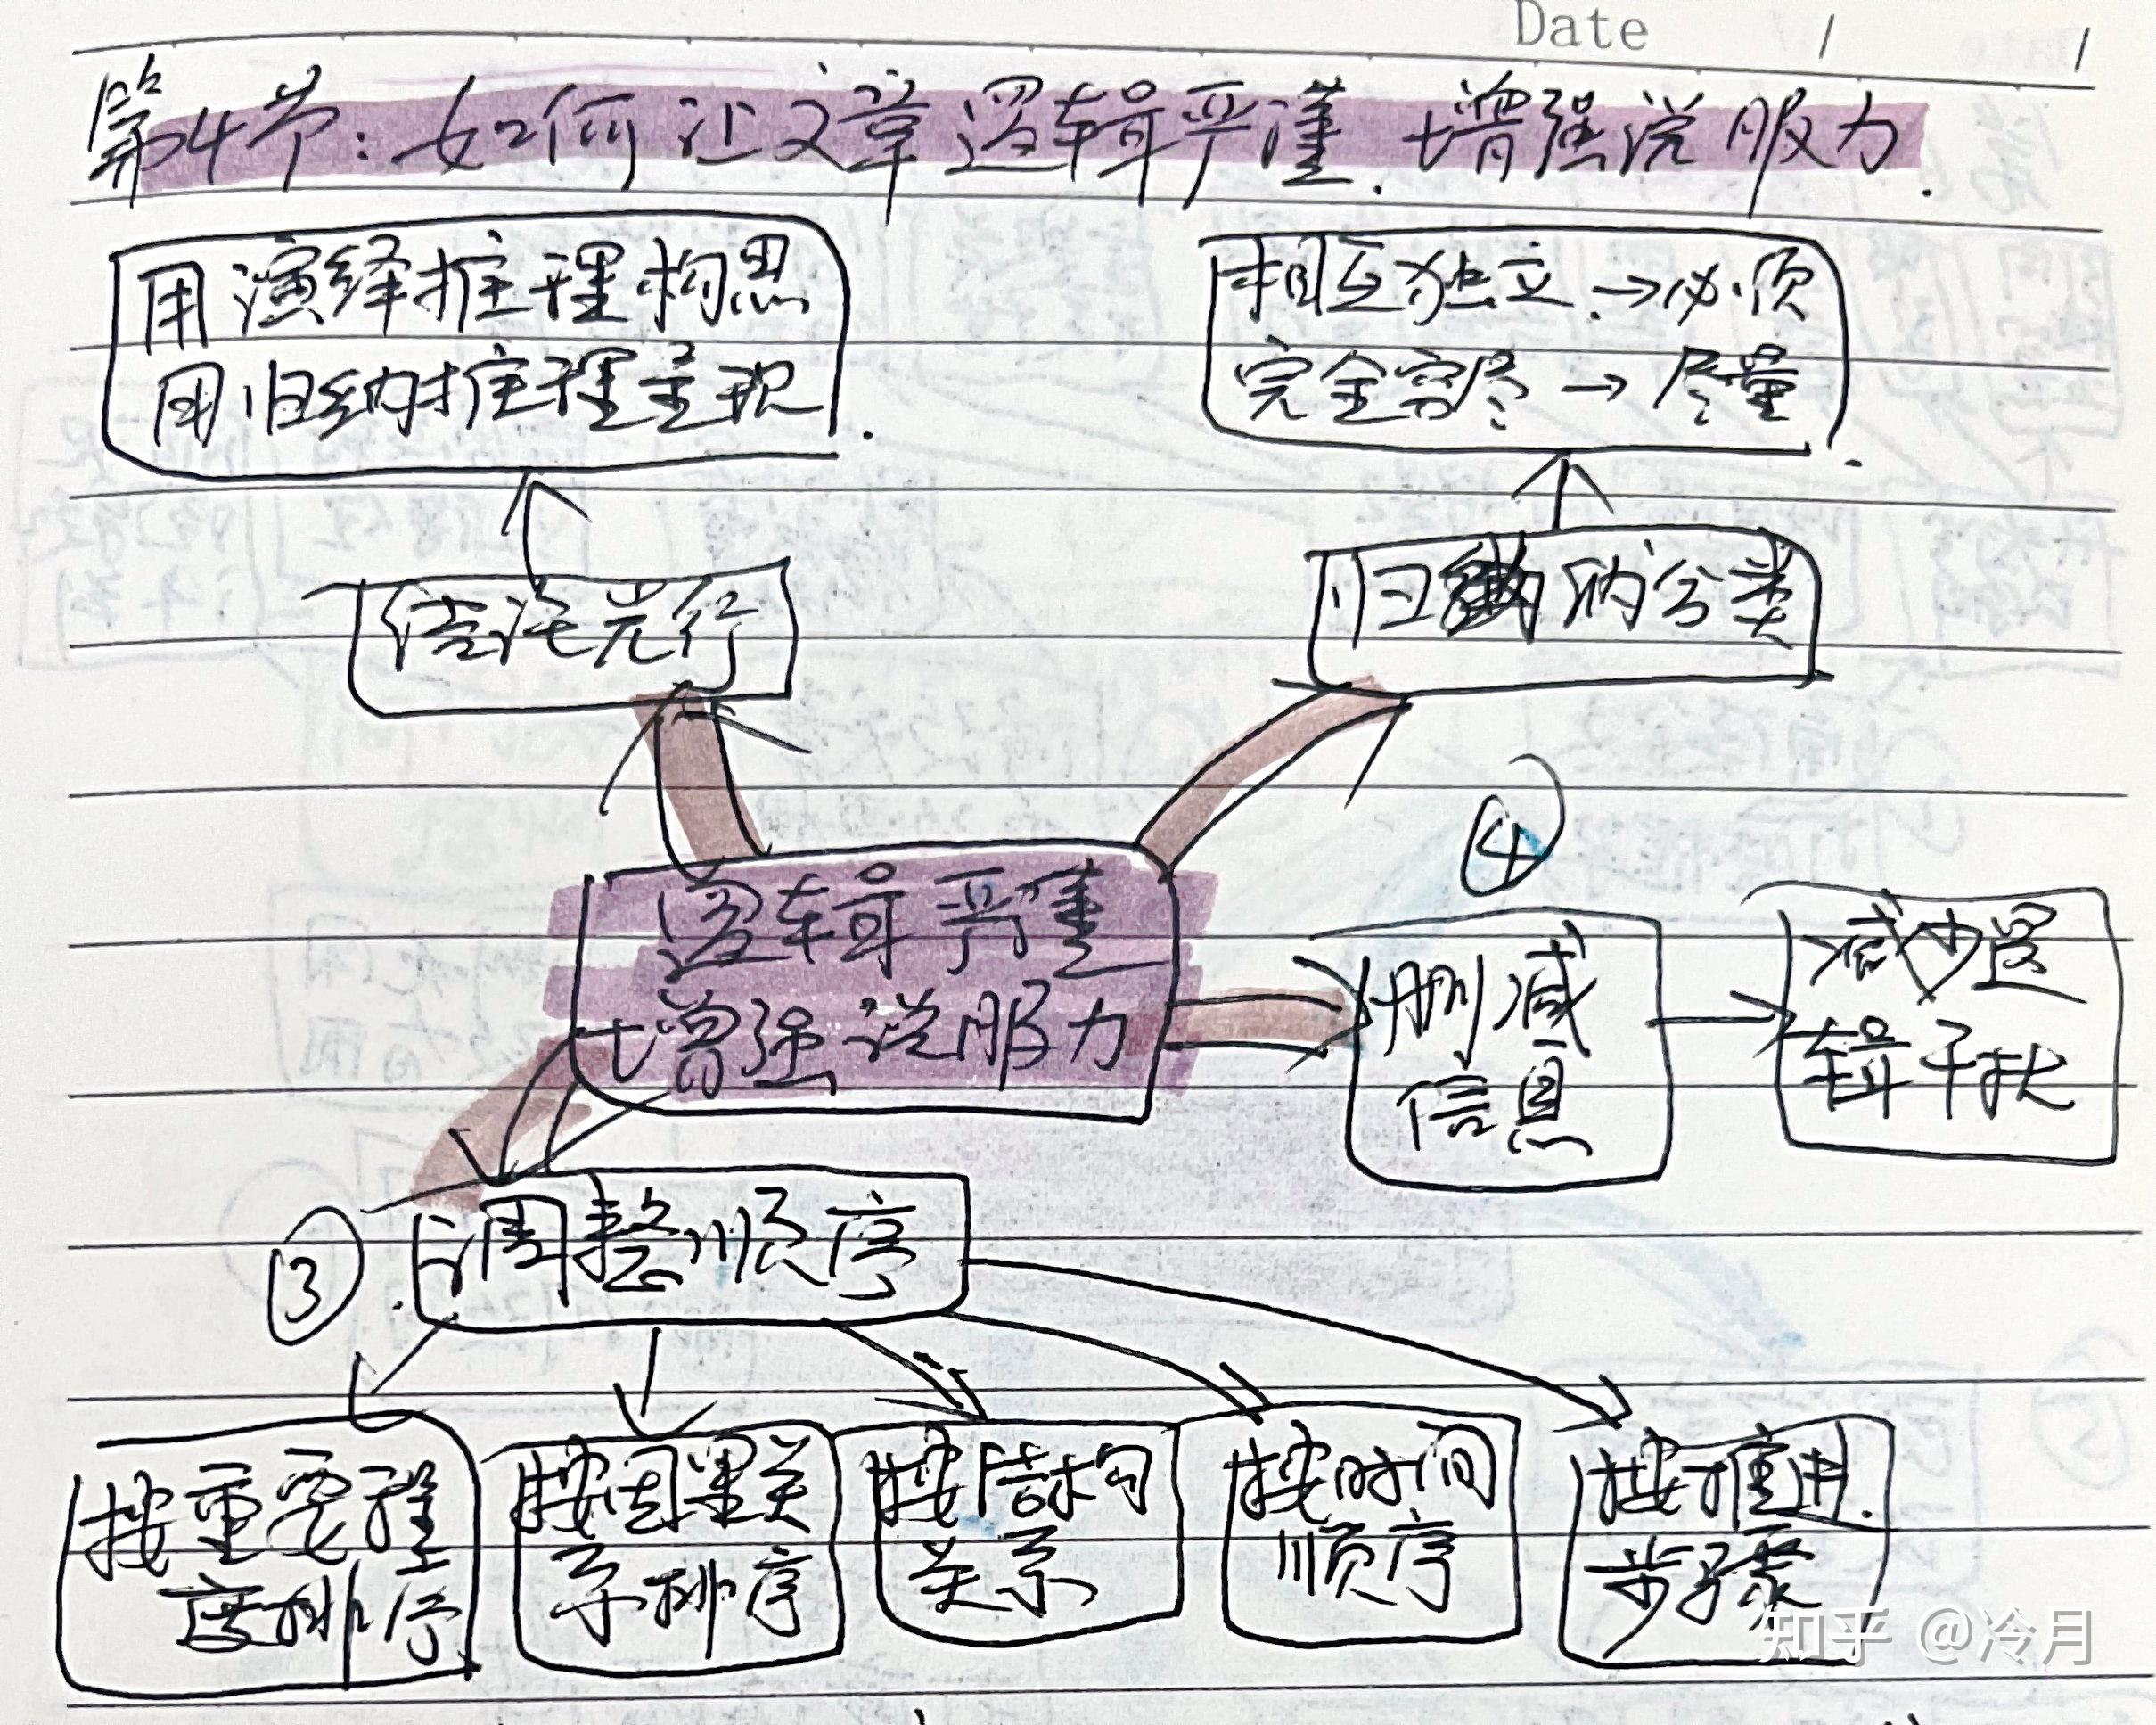 Date / /
第4节:如何让文章逻辑严谨.增强说服力.
用演绎推理构思
用归纳推理呈现.
相互独立.→必须
完全穷尽→尽量.
结论先行
归纳分类
逻辑严谨
增强说服力
④
删减
信息
减少逻
辑干扰
③.调整顺序
按重要程
度排序
按因果关
系排序
按结构
关系
按时间
顺序
按推进.
步骤
知乎 @冷月